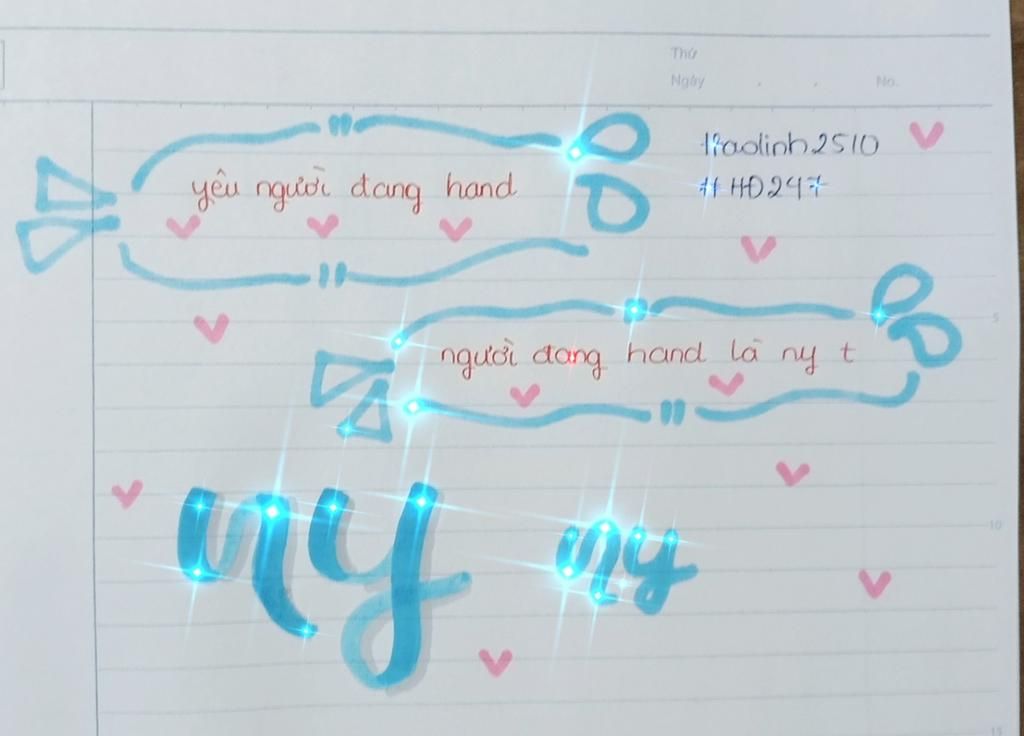 Thứ
Ngày . . No.
#aolinh2510
#HĐ247
yêu người đang hand
5
người đang hand là ny t
ny ny
10
15